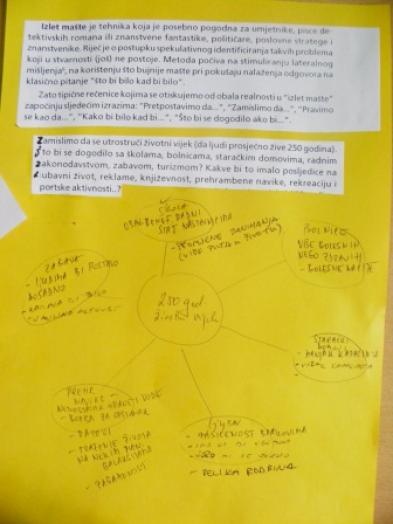 Izlet mašte je tehnika koja je posebno pogodna za umjetnike, pisce de-
tektivskih romana ili znanstvene fantastike, političare, poslovne stratege i
znanstvenike. Riječ je o postupku spekulativnog identificiranja takvih problema
koji u stvarnosti (još) ne postoje. Metoda počiva na stimuliranju lateralnog
mišljenja, na korištenju što bujnije mašte pri pokušaju nalaženja odgovora na
klasično pitanje "što bi bilo kad bi bilo".
Zato tipične rečenice kojima se otiskujemo od obala realnosti u "izlet mašte"
započinju sljedećim izrazima: "Pretpostavimo da...", "Zamislimo da...", "Pravimo
se kao da...", "Kako bi bilo kad bi...", "Što bi se dogodilo ako bi...".
Zamislimo da se utrostruči životni vijek (da ljudi prosječno žive 250 godina).
Što bi se dogodilo sa školama, bolnicama, staračkim domovima, radnim
zakonodavstvom, zabavom, turizmom? Kakve bi to imalo posljedice na
ljubavni život, reklame, književnost, prehrambene navike, rekreaciju i
portske aktivnosti..?
ŠKOLA
RADNI
STAŽ NASTAVNICIMA
- PROMJENE ZANIMANJA
(VIŠE PUTA U ŽIVOTU)
BOLNICE
VIŠE BOLESNIH
NEGO ZDRAVIH
- BOLESNE
ZABAVA
- LJUDIMA BI POSTALO
DOSADNO
250 god.
životni vijek
STARAČKI
DOMOVI
PREHR.
NAVIKE -
NEDOSTATAK
- BORBA ZA OPSTANAK
- TRAŽENJE ŽIVOTA
NA NEKIM
GALAKSIJAMA
- ZAGAĐENOST
LJUBAV
- ZASIĆENOST BRAKOVIMA
- VELIKA RODBINA